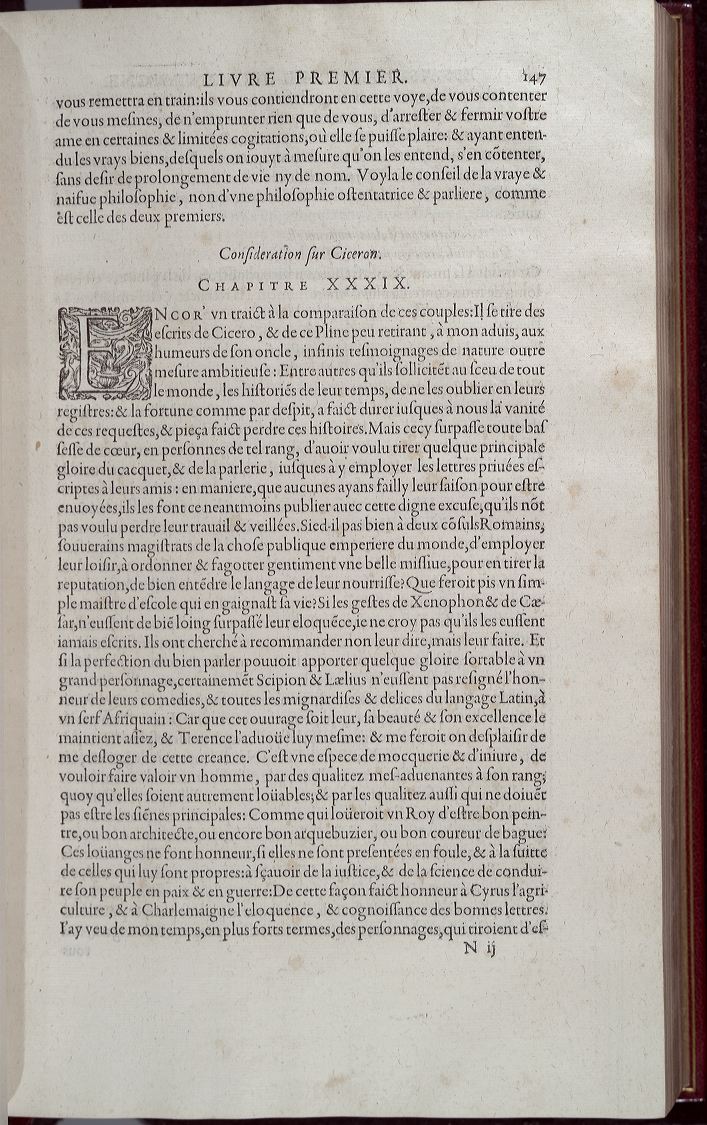 LIVRE PREMIER. 147
vous remettra en train:ils vous contiendront en cette voye,de vous contenter
de vous meſmes, de n'emprunter rien que de vous, d'arreſter & fermir voſtre
ame en certaines & limitées cogitations,où elle ſe puiſſe plaire: & ayant enten-
du les vrays biens,deſquels on iouyt à meſure qu'on les entend, s'en cõtenter,
ſans deſir de prolongement de vie ny de nom. Voyla le conſeil de la vraye &
naifue philoſophie, non d'vne philoſophie oſtentatrice & parliere, comme
eſt celle des deux premiers.
Conſideration ſur Ciceron.
CHAPITRE XXXIX.
ENCOR' vn traict à la comparaiſon de ces couples:Il ſe tire des
eſcrits de Cicero, & de ce Pline peu retirant, à mon aduis, aux
humeurs de ſon oncle, infinis teſmoignages de nature outre
meſure ambitieuſe: Entre autres qu'ils ſollicitẽt au ſceu de tout
le monde, les hiſtoriẽs de leur temps, de ne les oublier en leurs
regiſtres:& la fortune comme par deſpit, a faict durer iuſques à nous la vanité
de ces requeſtes,& pieça faict perdre ces hiſtoires.Mais cecy ſurpaſſe toute baſ
ſeſſe de cœur, en perſonnes de tel rang, d'auoir voulu tirer quelque principale
gloire du cacquet,& de la parlerie, iuſques à y employer les lettres priuées eſ-
criptes à leurs amis: en maniere,que aucunes ayans failly leur ſaiſon pour eſtre
enuoyées,ils les font ce neantmoins publier auec cette digne excuſe,qu'ils nõt
pas voulu perdre leur trauail & veillées.Sied-il pas bien à deux cõſuls Romains,
ſouuerains magiſtrats de la choſe publique emperiere du monde,d'employer
leur loiſir,à ordonner & fagotter gentiment vne belle miſſiue,pour en tirer la
reputation,de bien entẽdre le langage de leur nourriſſe?Que feroit pis vn ſim-
ple maiſtre d'eſcole qui en gaignaſt ſa vie?Si les geſtes de Xenophon & de Cæ-
ſar,n'euſſent de biẽ loing ſurpaſſé leur eloquẽce,ie ne croy pas qu'ils les euſſent
iamais eſcrits. Ils ont cherché à recommander non leur dire,mais leur faire. Et
ſi la perfection du bien parler pouuoit apporter quelque gloire ſortable à vn
grand perſonnage,certainemẽt Scipion & Lælius n'euſſent pas reſigné l'hon-
neur de leurs comedies,& toutes les mignardiſes & delices du langage Latin,à
vn ſerf Afriquain: Car que cet ouurage ſoit leur, ſa beauté & ſon excellence le
maintient aſſez, & Terence l'aduoüe luy meſme: & me feroit on deſplaiſir de
me deſloger de cette creance. C'eſt vne eſpece de mocquerie & d'iniure, de
vouloir faire valoir vn homme, par des qualitez meſ-aduenantes à ſon rang;
quoy qu'elles ſoient autrement loüables;& par les qualitez auſſi qui ne doiuẽt
pas eſtre les ſiẽnes principales: Comme qui loüeroit vn Roy d'eſtre bon pein-
tre,ou bon architecte,ou encore bon arquebuzier, ou bon coureur de bague:
Ces loüanges ne font honneur,ſi elles ne ſont preſentées en foule, & à la ſuitte
de celles qui luy ſont propres:à ſçauoir de la iuſtice,& de la ſcience de condui-
re ſon peuple en paix & en guerre:De cette façon faict honneur à Cyrus l'agri-
culture, & à Charlemaigne l'eloquence, & cognoiſſance des bonnes lettres.
I'ay veu de mon temps,en plus forts termes,des perſonnages,qui tiroient d'eſ-
N ij